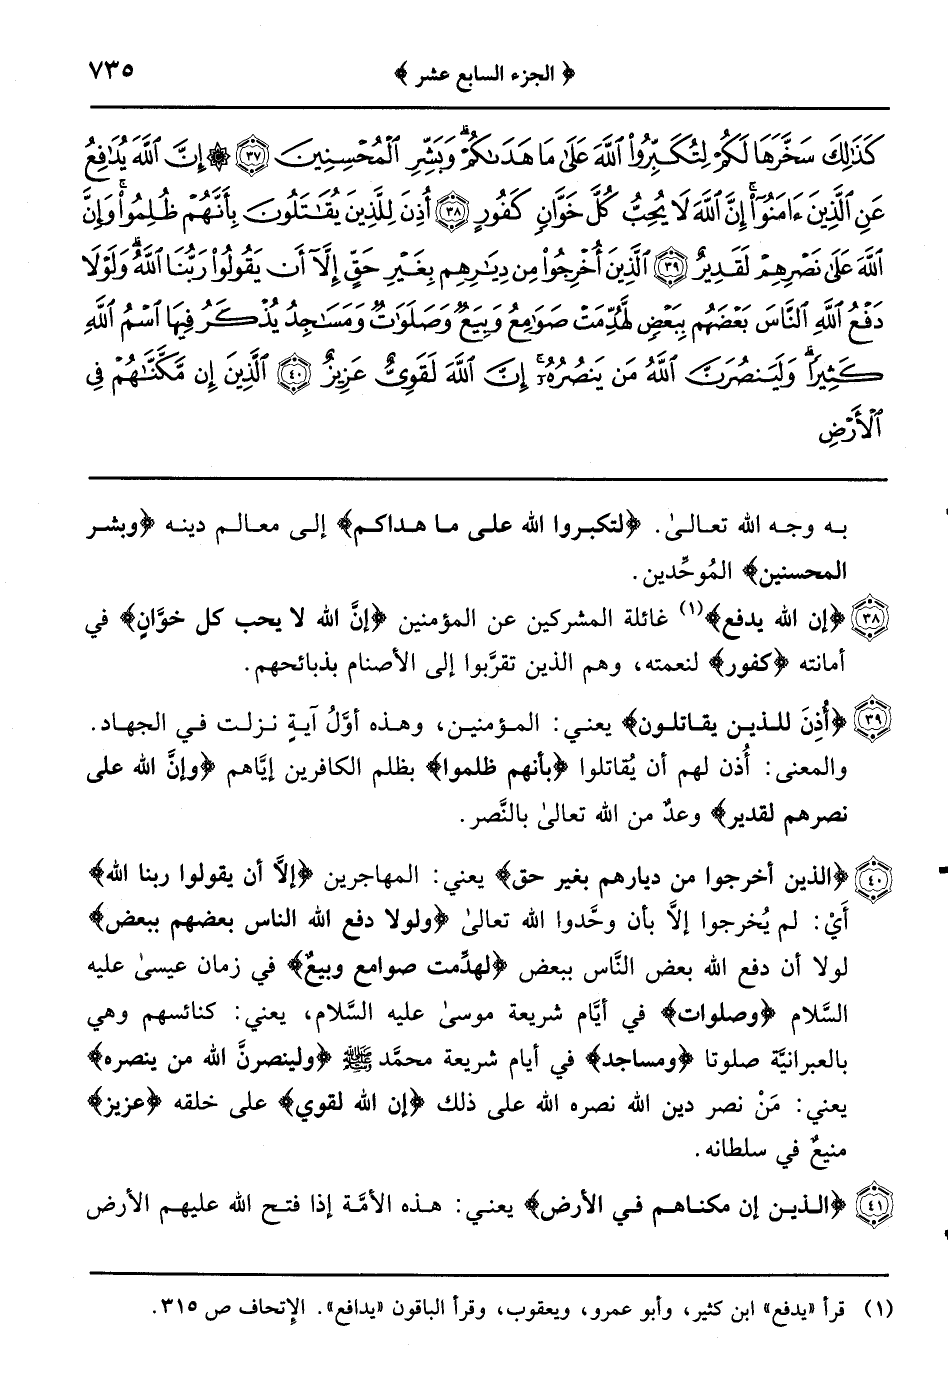 ﴿ الجزء السابع عشر ﴾ ٧٣٥
كَذَٰلِكَ سَخَّرَهَا لَكُمْ لِتُكَبِّرُوا۟ ٱللَّهَ عَلَىٰ مَا هَدَىٰكُمْ ۗ وَبَشِّرِ ٱلْمُحْسِنِينَ ﴿٣٧﴾ ۞ إِنَّ ٱللَّهَ يُدَٰفِعُ
عَنِ ٱلَّذِينَ ءَامَنُوٓا۟ ۗ إِنَّ ٱللَّهَ لَا يُحِبُّ كُلَّ خَوَّانٍ كَفُورٍ ﴿٣٨﴾ أُذِنَ لِلَّذِينَ يُقَٰتَلُونَ بِأَنَّهُمْ ظُلِمُوا۟ ۚ وَإِنَّ
ٱللَّهَ عَلَىٰ نَصْرِهِمْ لَقَدِيرٌ ﴿٣٩﴾ ٱلَّذِينَ أُخْرِجُوا۟ مِن دِيَٰرِهِم بِغَيْرِ حَقٍّ إِلَّآ أَن يَقُولُوا۟ رَبُّنَا ٱللَّهُ ۗ وَلَوْلَا
دَفْعُ ٱللَّهِ ٱلنَّاسَ بَعْضَهُم بِبَعْضٍ لَّهُدِّمَتْ صَوَٰمِعُ وَبِيَعٌ وَصَلَوَٰتٌ وَمَسَٰجِدُ يُذْكَرُ فِيهَا ٱسْمُ ٱللَّهِ
كَثِيرًا ۗ وَلَيَنصُرَنَّ ٱللَّهُ مَن يَنصُرُهُۥٓ ۗ إِنَّ ٱللَّهَ لَقَوِىٌّ عَزِيزٌ ﴿٤٠﴾ ٱلَّذِينَ إِن مَّكَّنَّٰهُمْ فِى
ٱلْأَرْضِ
به وجه الله تعالىٰ. ﴿لتكبروا الله على ما هداكم﴾ إلى معالم دينه ﴿وبشر
المحسنين﴾ المُوحِّدين.
﴿٣٨﴾ ﴿إن الله يدفع﴾(١) غائلة المشركين عن المؤمنين ﴿إنَّ الله لا يحب كل خوَّانٍ﴾ في
أمانته ﴿كفور﴾ لنعمته، وهم الذين تقرَّبوا إلى الأصنام بذبائحهم.
﴿٣٩﴾ ﴿أُذِنَ للذين يقاتلون﴾ يعني: المؤمنين، وهذه أوَّلُ آيةٍ نزلت في الجهاد.
والمعنى: أُذن لهم أن يُقاتلوا ﴿بأنهم ظلموا﴾ بظلم الكافرين إيَّاهم ﴿وإنَّ الله على
نصرهم لقدير﴾ وعدٌ من الله تعالىٰ بالنَّصر.
﴿٤٠﴾ ﴿الذين أخرجوا من ديارهم بغير حق﴾ يعني: المهاجرين ﴿إلاَّ أن يقولوا ربنا الله﴾
أَيْ: لم يُخرجوا إلاَّ بأن وحَّدوا الله تعالىٰ ﴿ولولا دفع الله الناس بعضهم ببعض﴾
لولا أن دفع الله بعض النَّاس ببعض ﴿لهدِّمت صوامع وبيعٌ﴾ في زمان عيسىٰ عليه
السَّلام ﴿وصلوات﴾ في أيَّام شريعة موسىٰ عليه السَّلام، يعني: كنائسهم وهي
بالعبرانيَّة صلوتا ﴿ومساجد﴾ في أيام شريعة محمَّد ﷺ ﴿ولينصرنَّ الله من ينصره﴾
يعني: مَنْ نصر دين الله نصره الله على ذلك ﴿إن الله لقوي﴾ على خلقه ﴿عزيز﴾
منيعٌ في سلطانه.
﴿٤١﴾ ﴿الذين إن مكناهم في الأرض﴾ يعني: هذه الأمَّة إذا فتح الله عليهم الأرض
(١) قرأ «يدفع» ابن كثير، وأبو عمرو، ويعقوب، وقرأ الباقون «يدافع». الإتحاف ص ٣١٥.